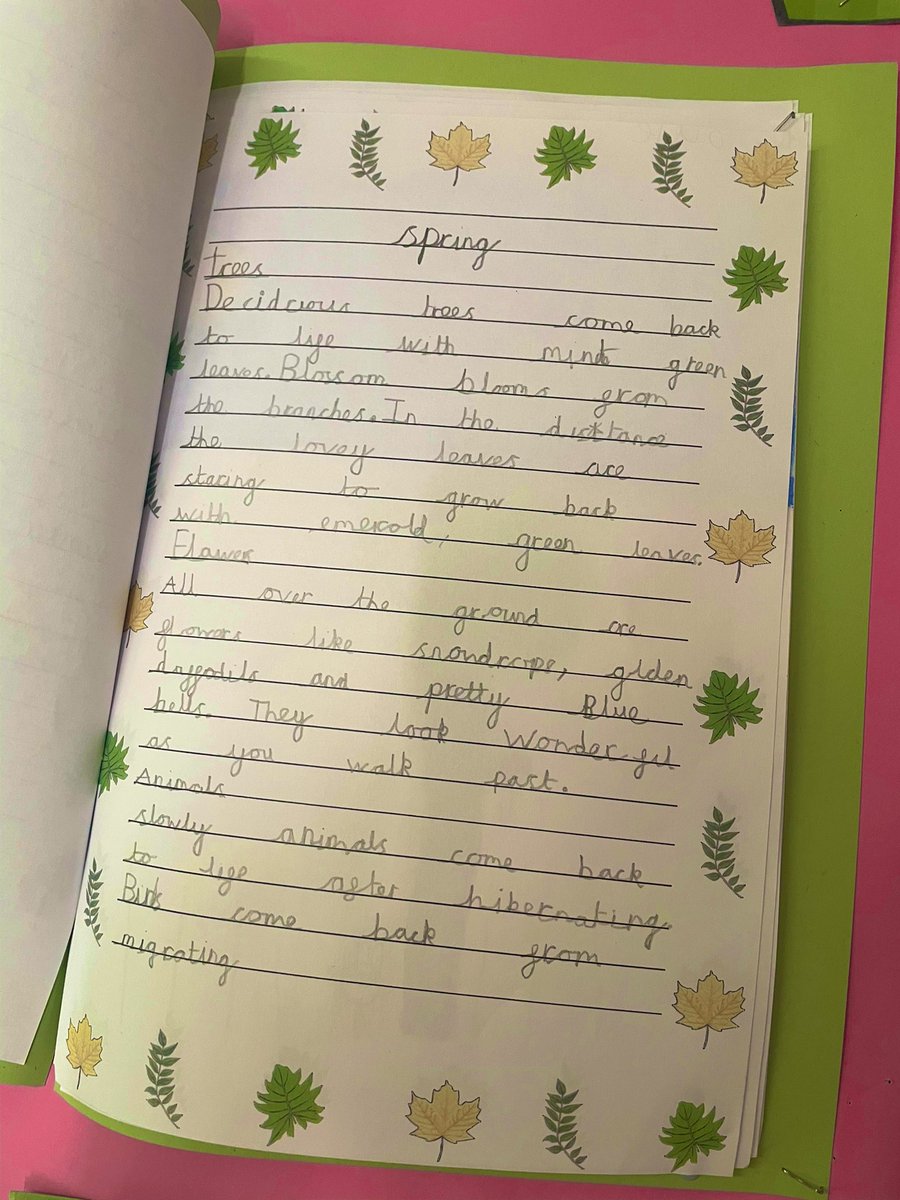 Spring
Trees
Decidcious trees come back
to life with mint green
leaves. Blossom blooms from
the branches. In the distance
the lovey leaves are
staring to grow back
with emerold, green leaves.
Flower
All over the ground are
flowers like snondrops, golden
daffodils and pretty Blue
bells. They look Wonderful
as you walk past.
Animals
slowly animals come back
to life after hibernating.
Birds come back from
migrating